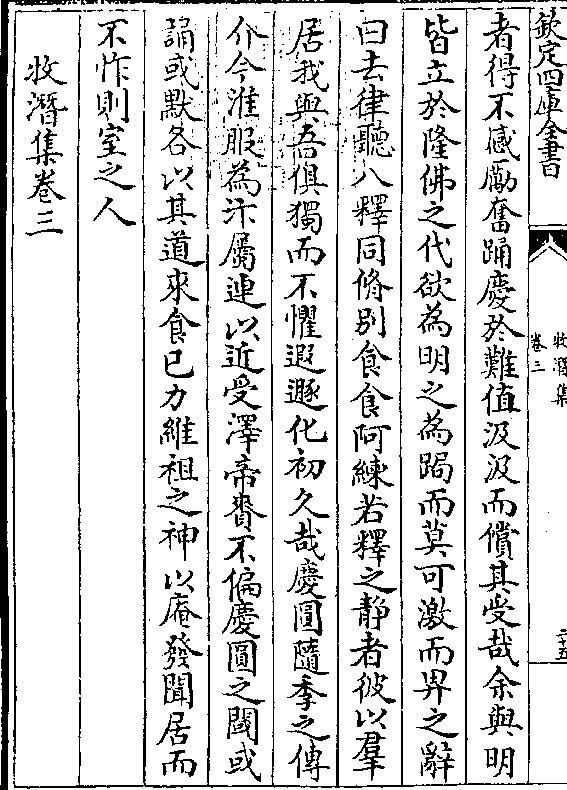 欽定四庫全書
牧潛集
卷三
二十五
者得不感勵奮踊慶於難值汲汲而償其受哉余與明
皆立於隆佛之代欲為明之為跼而莫可激而畀之辭
曰去律聽八釋同脩別食食阿練若釋之静者彼以羣
居我與吾俱獨而不懼遐遯化初久哉慶圓隨季之傳
介今淮服為汴屬連以近受澤帝賚不偏慶圓之闥或
誦或默各以其道來食已力維祖之神以庵發聞居而
不怍則室之人
牧潛集卷三